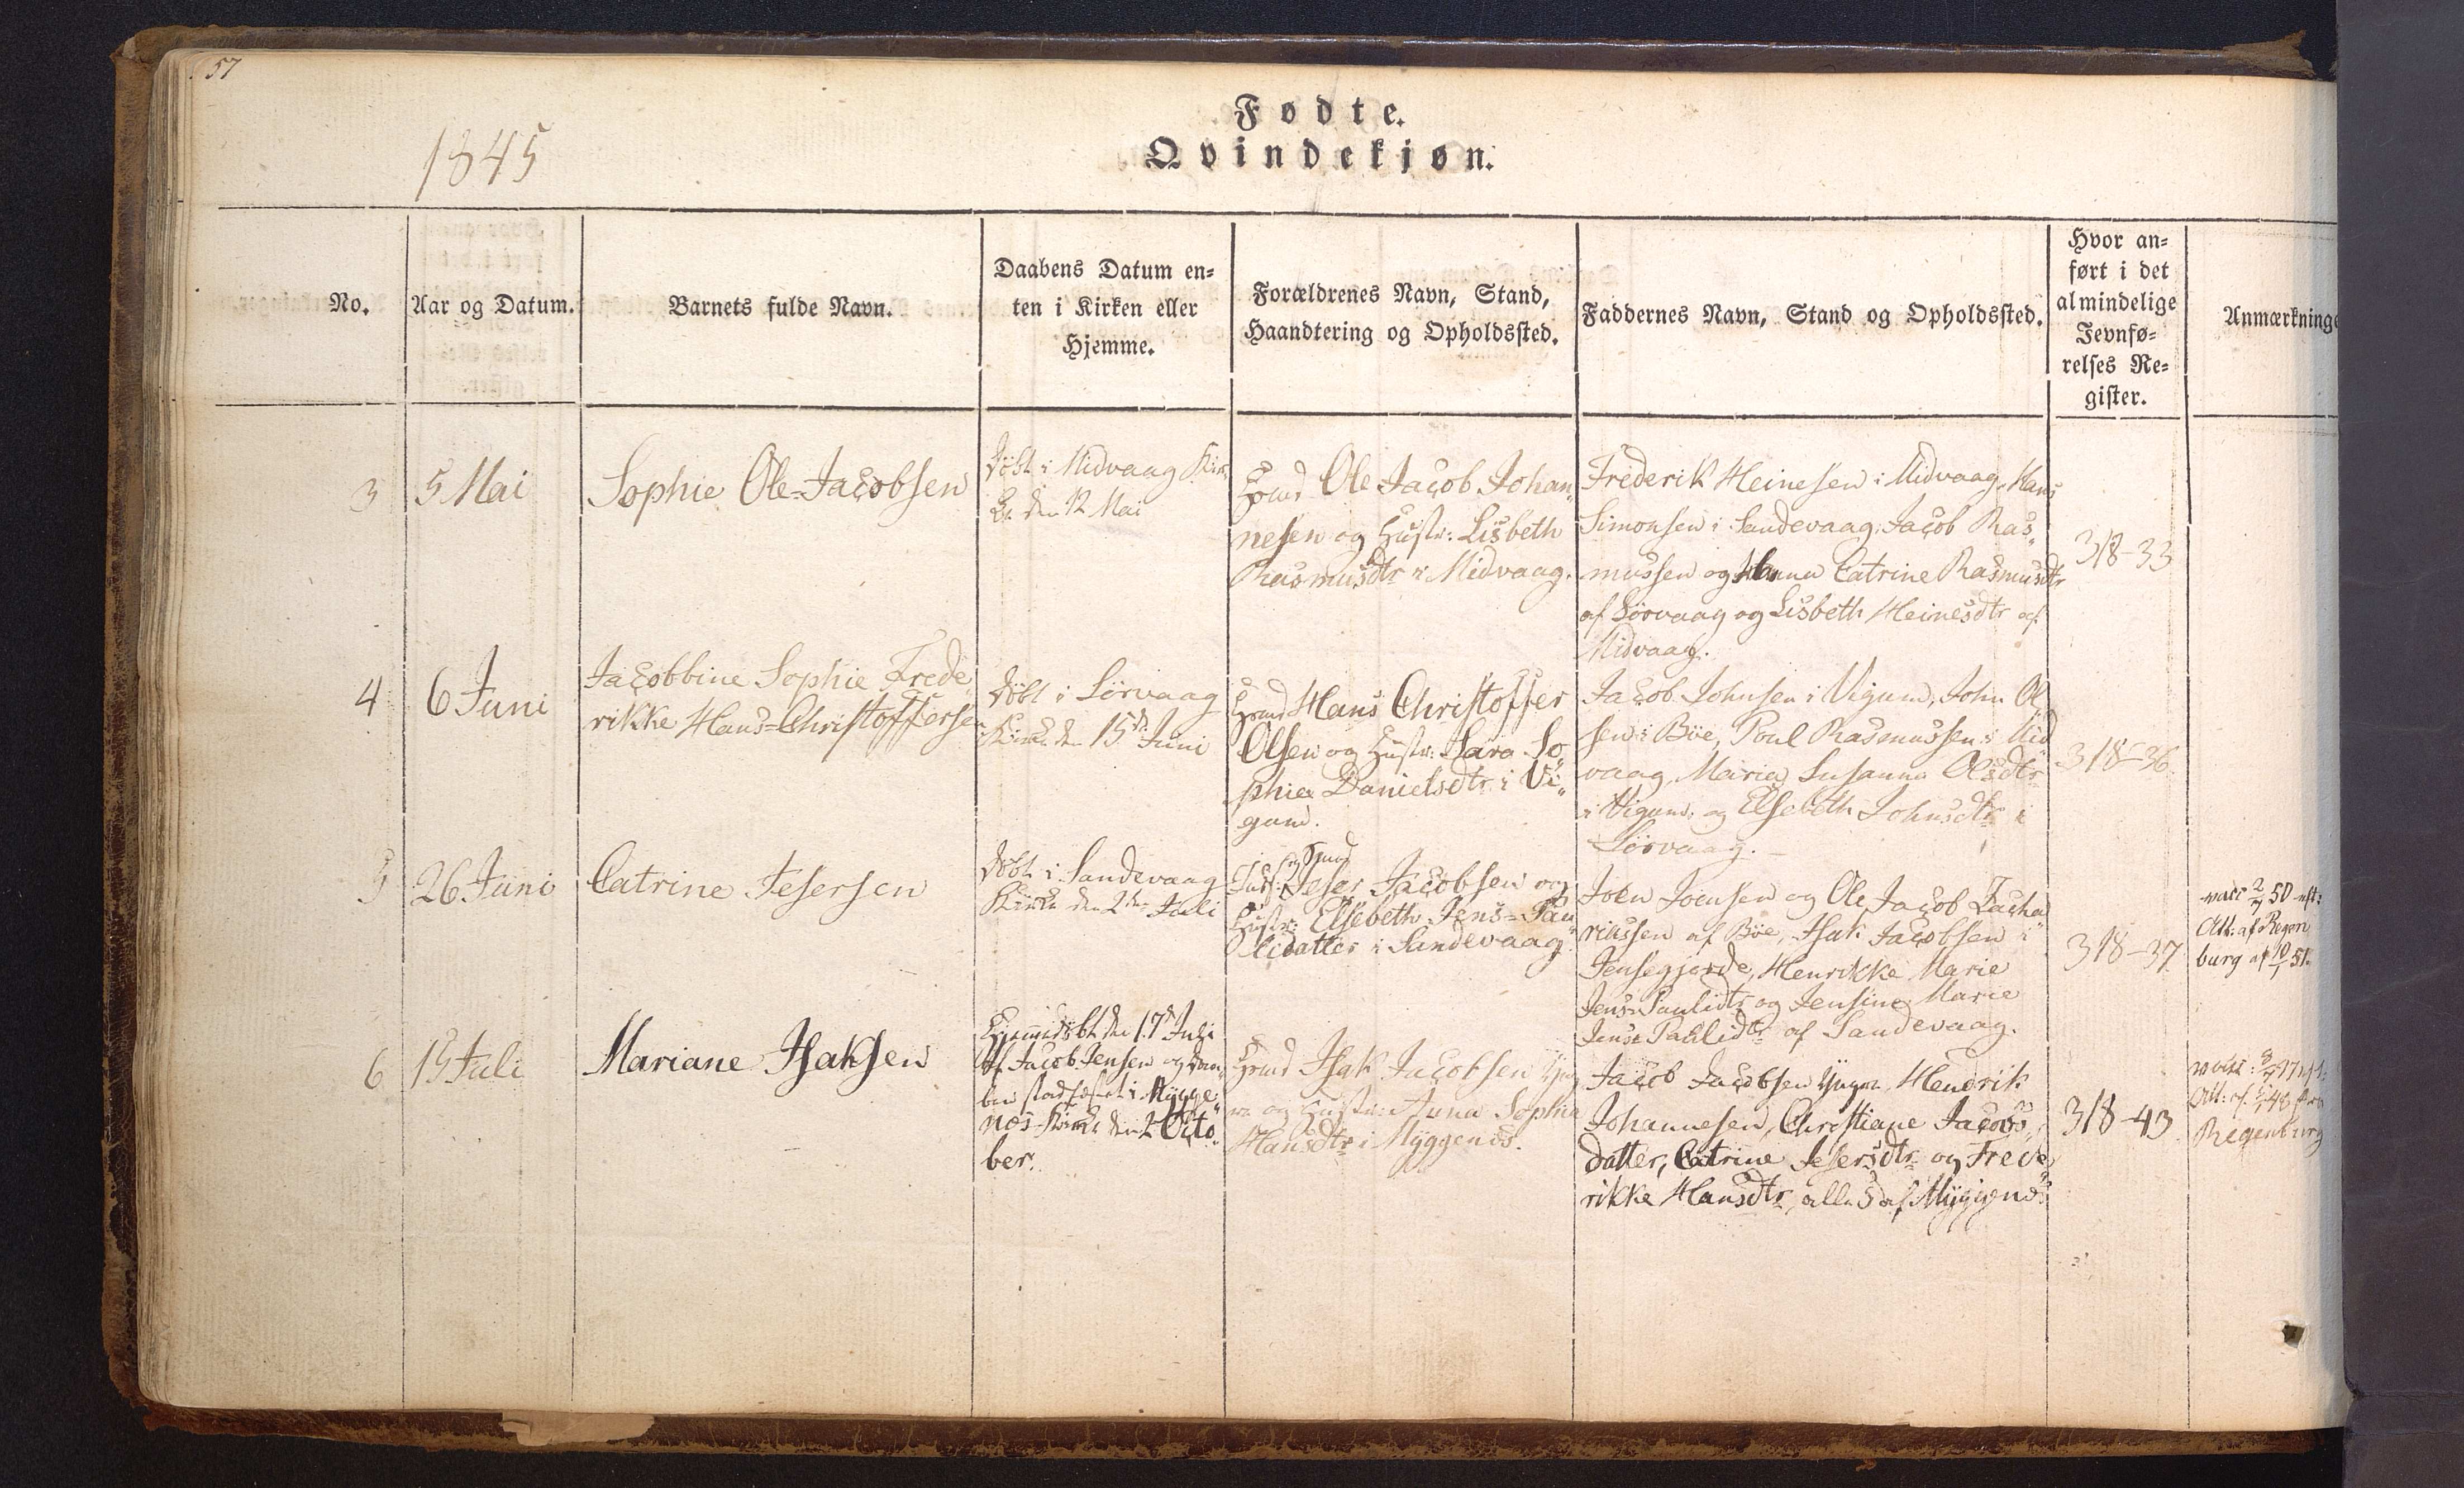 57
Fødte.
Qvindekjøn.
1845
No.
Aar og Datum.
Barnets fulde Navn.
Daabens Datum en-
ten i Kirken eller
Hjemme.
Forældrenes Navn, Stand,
Haandtering og Opholdssted.
Faddernes Navn, Stand og Opholdssted.
Hvor an-
ført i det
almindelige
Jevnfø-
relses Re-
gister.
Anmærkninge
3
5 Mai
Sophie Ole-Jacobsen
Døbt i Midvaag Kir
ke den 12 Mai
Gmd Ole Jacob Johan„
nesen og Hustr: Lisbeth
Rasmusdtr i Midvaag.
Frederik Heinesen i Midvaag, Hans
Simonsen i Sandevaag, Jacob Ras„
mussen og Hanna Catrine Rasmusdtr
af Sørvaag og Lisbeth Heinesdtr af
Midvaag.
318-33
4
6 Juni
Jacobbine Sophie Frede
rikke Hans-Christoffersen
døbt i Sørvaag
Kirke den 15de Juni
Gmd Hans Christoffer
Olsen og Hustr: Sara So„
phie Danielsdtr i Vi„
gum.
Jacob Johnsen i Vigum, John Ol
sen i Böe, Poul Rasmussen i Mid
vaag, Maria Susanna Olsdtr
i Vigum, og Elsebeth Johnsdtr i
Sørvaag.
318-36
5
26 Juni
Catrine Jesersen
døbt i Sandevaag
Kirke den 2den Juli
og Gmd
Jeser Jacobsen og
Hustr: Elsebeth Jens-Pau„
lidatter i Sandevaag
Joen Joensen og Ole Jacob Zacha„
riassen af Böe, Isak Jacobsen i
Jensegjerde, Henrikke Marie
Jens-Paulidtr og Jensine Marie
Jens-Paulidtr af Sandevaag.
318-37
vacc 2/7 50 eft:
Att: af Regen
burg af 10/1 51.
6
15 Juli
Mariane Isaksen
Hjemmedøbt den 17de Juli
af Jacob Jensen og Daa„
ben stadfæstet i Mygge„
næs-Kirke den 2 Octo„
ber.
Gmd Isak Jacobsen Yng
re og Hustr: Anna Sophia
Hansdtr i Myggenæs.
Jacob Jacobsen Yngre, Hendrik
Johannesen, Christiane Jacobs„
datter, Catrine Jesersdtr og Frede„
rikke Hansdtr, alle 5 af Myggenæs
318-43
Regenburg